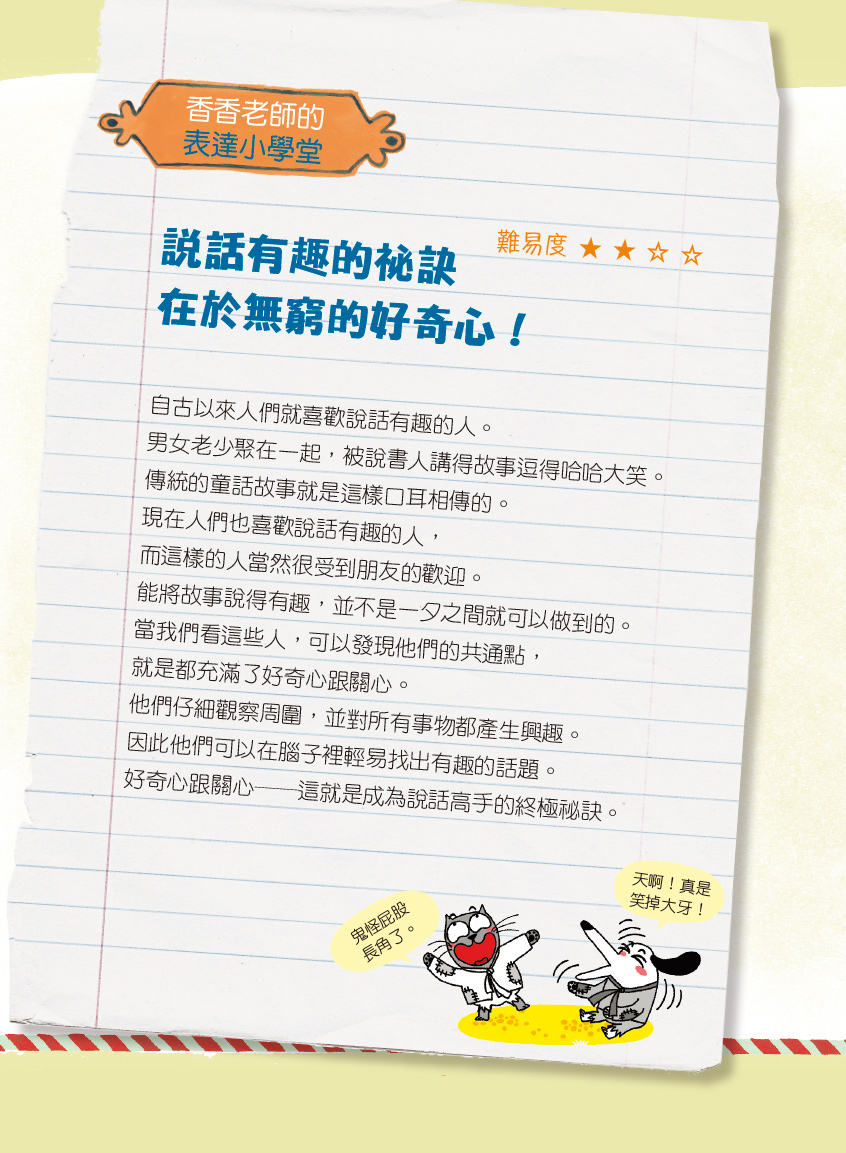 香香老師的
表達小學堂
說話有趣的祕訣
難易度 ★ ★ ☆ ☆
在於無窮的好奇心！
自古以來人們就喜歡說話有趣的人。
男女老少聚在一起，被說書人講得故事逗得哈哈大笑。
傳統的童話故事就是這樣口耳相傳的。
現在人們也喜歡說話有趣的人，
而這樣的人當然很受到朋友的歡迎。
能將故事說得有趣，並不是一夕之間就可以做到的。
當我們看這些人，可以發現他們的共通點，
就是都充滿了好奇心跟關心。
他們仔細觀察周圍，並對所有事物都產生興趣。
因此他們可以在腦子裡輕易找出有趣的話題。
好奇心跟關心——這就是成為說話高手的終極祕訣。
鬼怪屁股
長角了。
天啊！真是
笑掉大牙！